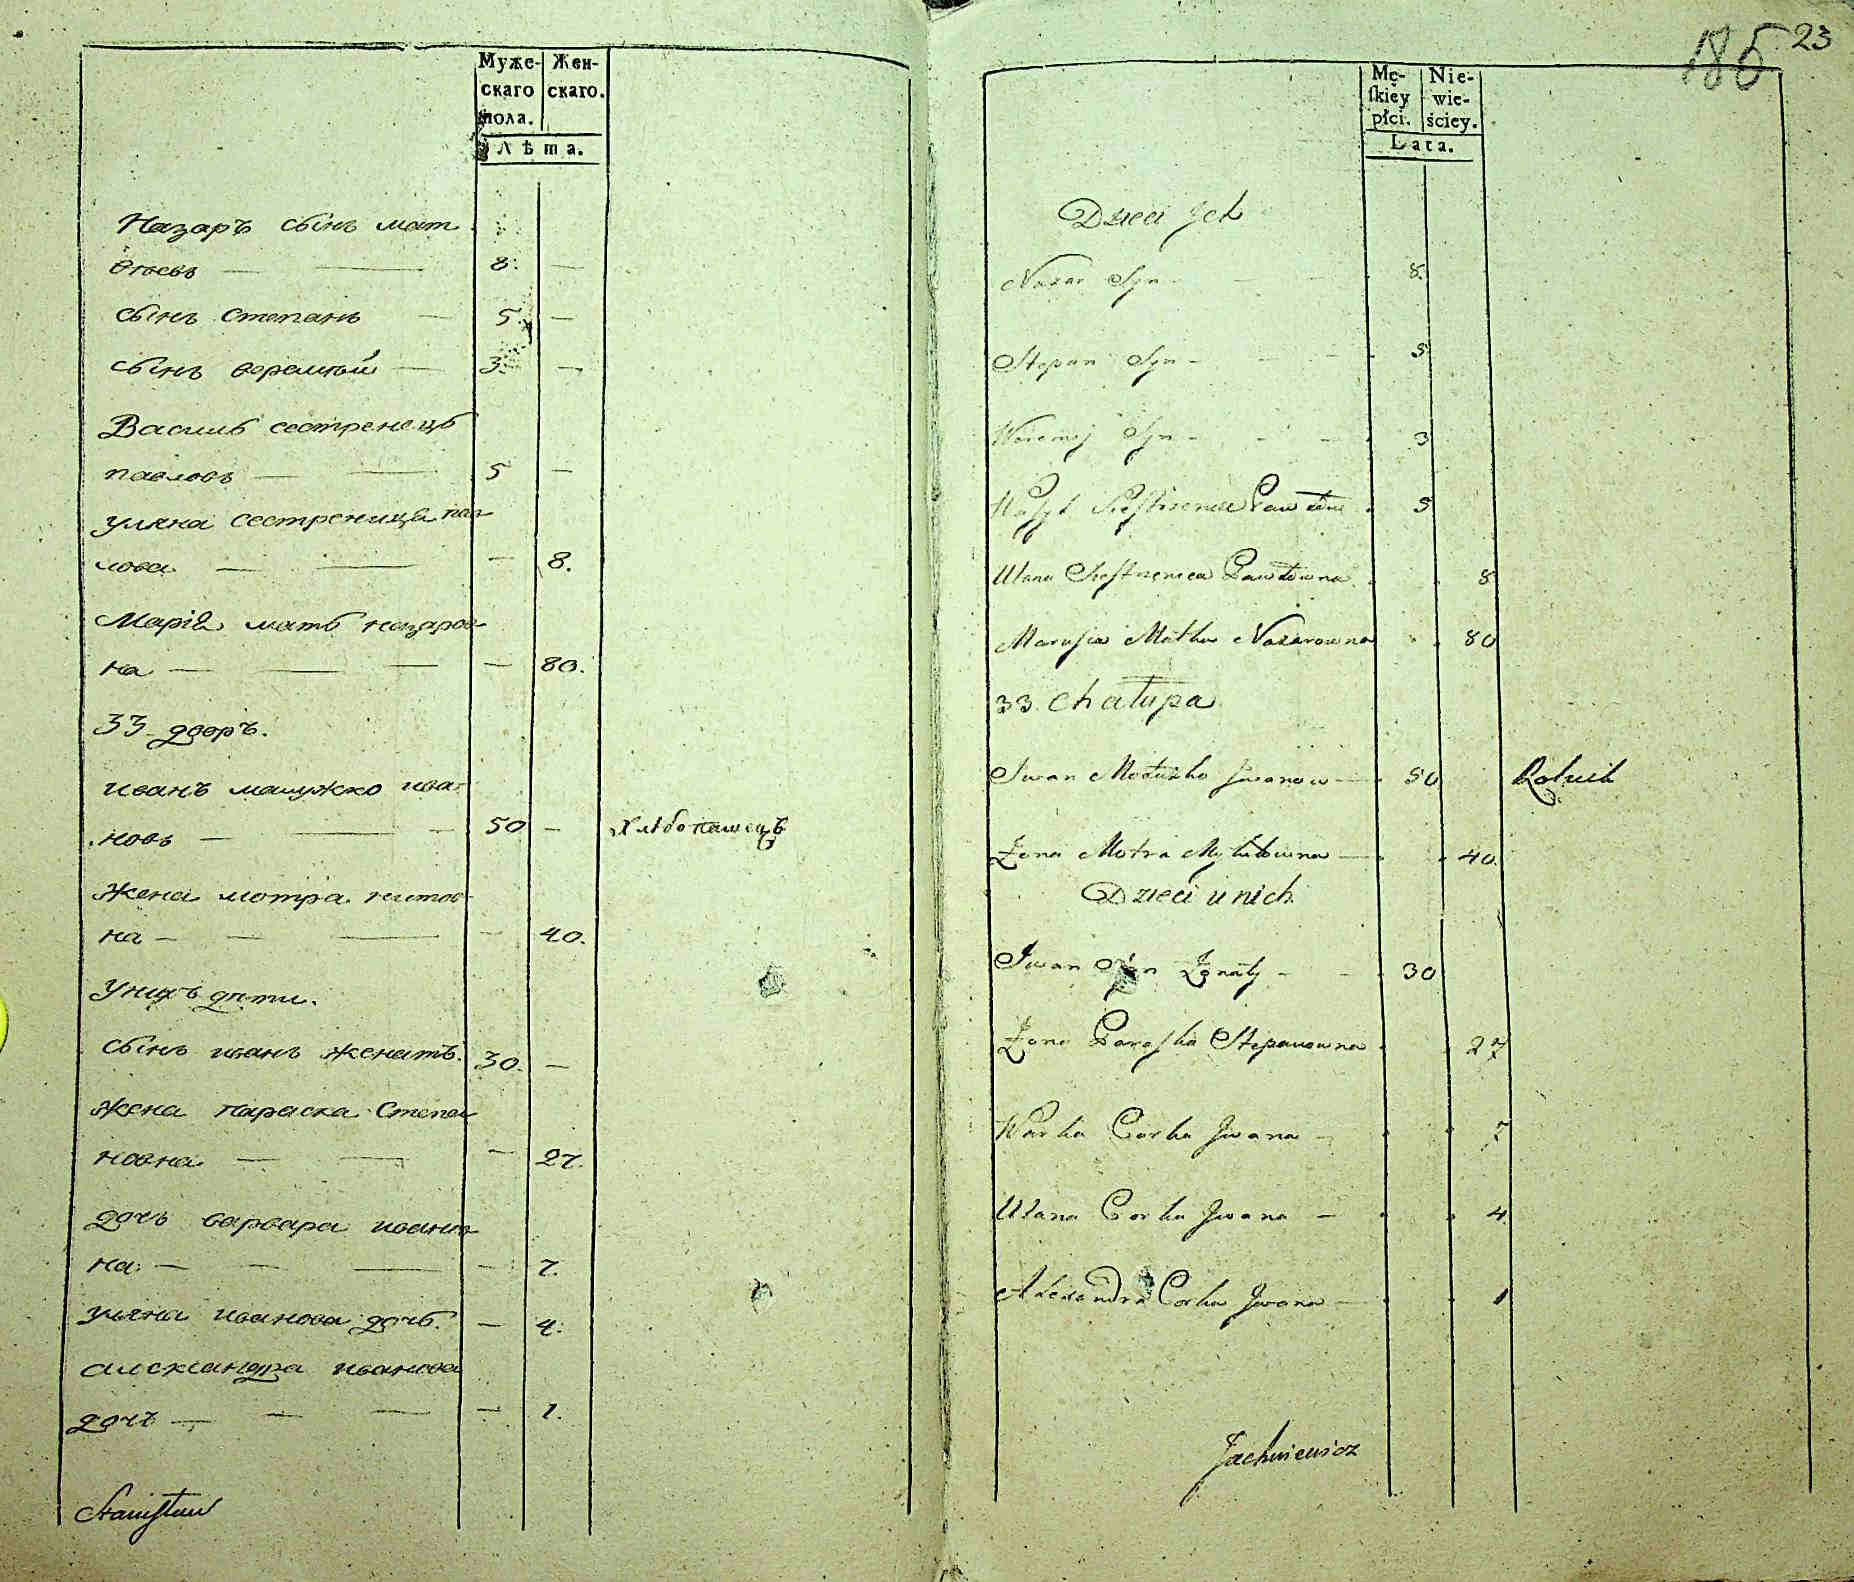 Муже- Жен-
скаго скаго.
пола.
Лѣта.
Назаръ сынъ мат
ѳѣевъ — — 8. —
сынъ степанъ — 5. —
сынъ веремѣй — 3. —
Василь сестренецъ
павловъ — — 5 —
уляна сестреница пав
лова — — — 8.
Марія мать назаров
на — — — — 80.
33 дворъ.
иванъ мацужко ива
новъ — — — 50 — хлѣбопашецъ
жена мотра титов
на — — — — 40.
У нихъ дѣти.
сынъ иванъ женатъ. 30. —
жена параска степа
новна — — — 27.
дочь варвара иванов
на — — — — 7.
уляна иванова дочь. — 4.
александра иванова
дочь — — — — 1.
Stanisław
186 23
Mę- Nie-
skiey wie-
płci. ściey.
Lata.
Dzieci Ich
Nazar Syn — — 8.
Stepan Syn — — — 5
Weremij Syn — — — 3
Wasyl Siestrzeniec Pawłów 5
Ulana Siestrzenica Pawłowna 8
Marusia Matka Nazarowna 80
33 Chałupa
Iwan Iwanow — 50 Rolnik
Żona Motra — 40.
Dzieci u nich
Iwan Syn Żonaty — — 30
Żona Paraska Stepanowna 27
Warka Corka Iwana — 7
Ulana Corka Iwana — 4
Alexandra Corka Iwana — 1
Jachniewicz